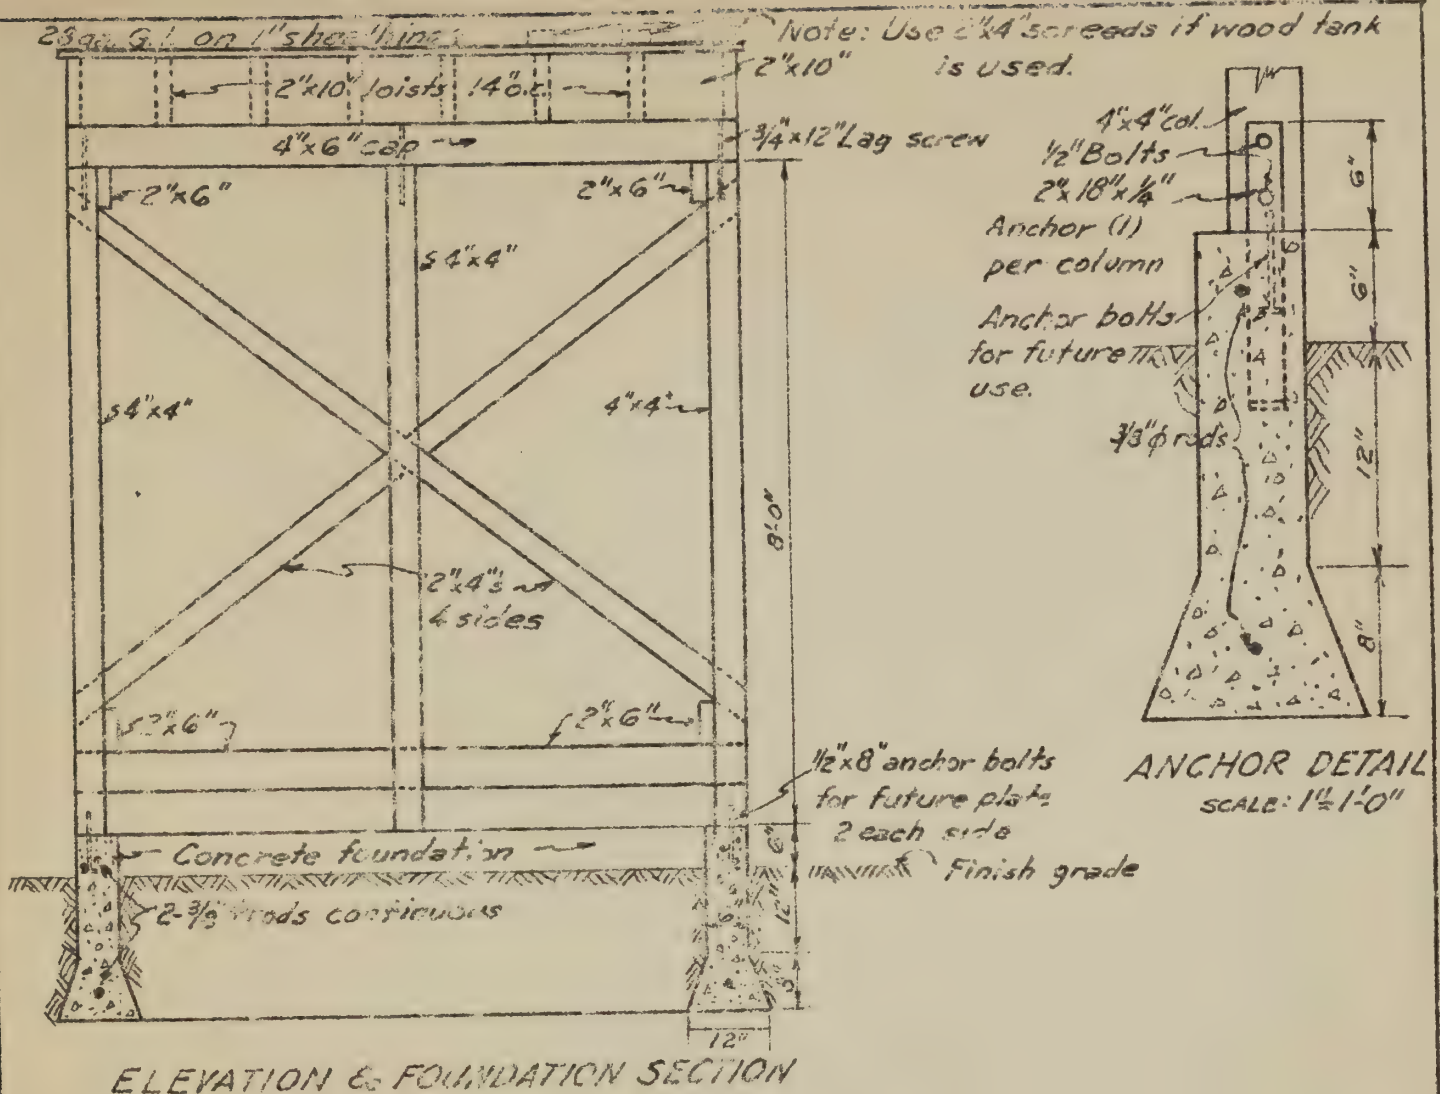 28ga. G.I. on 1" sheathing
Note: Use 2"x4" screeds if wood tank
is used.
2"x10"
2"x10" Joists 14"o.c.
4"x6" cap
3/4"x12" Lag screw
2"x6"
2"x6"
4"x4"
4"x4"
4"x4"
8'-0"
2"x4"s
4 sides
2"x6"
2"x6"
1/2"x8" anchor bolts
for future plate
2 each side
6"
Concrete foundation
Finish grade
2-3/8"φ rods continuous
12"
6"
8"
12"
ELEVATION & FOUNDATION SECTION
4"x4" col.
1/2" Bolts
2"x18"x1/4"
Anchor (1)
per column
Anchor bolts
for future
use.
3/8"φ rods
6"
6"
12"
8"
ANCHOR DETAIL
SCALE: 1"=1'-0"